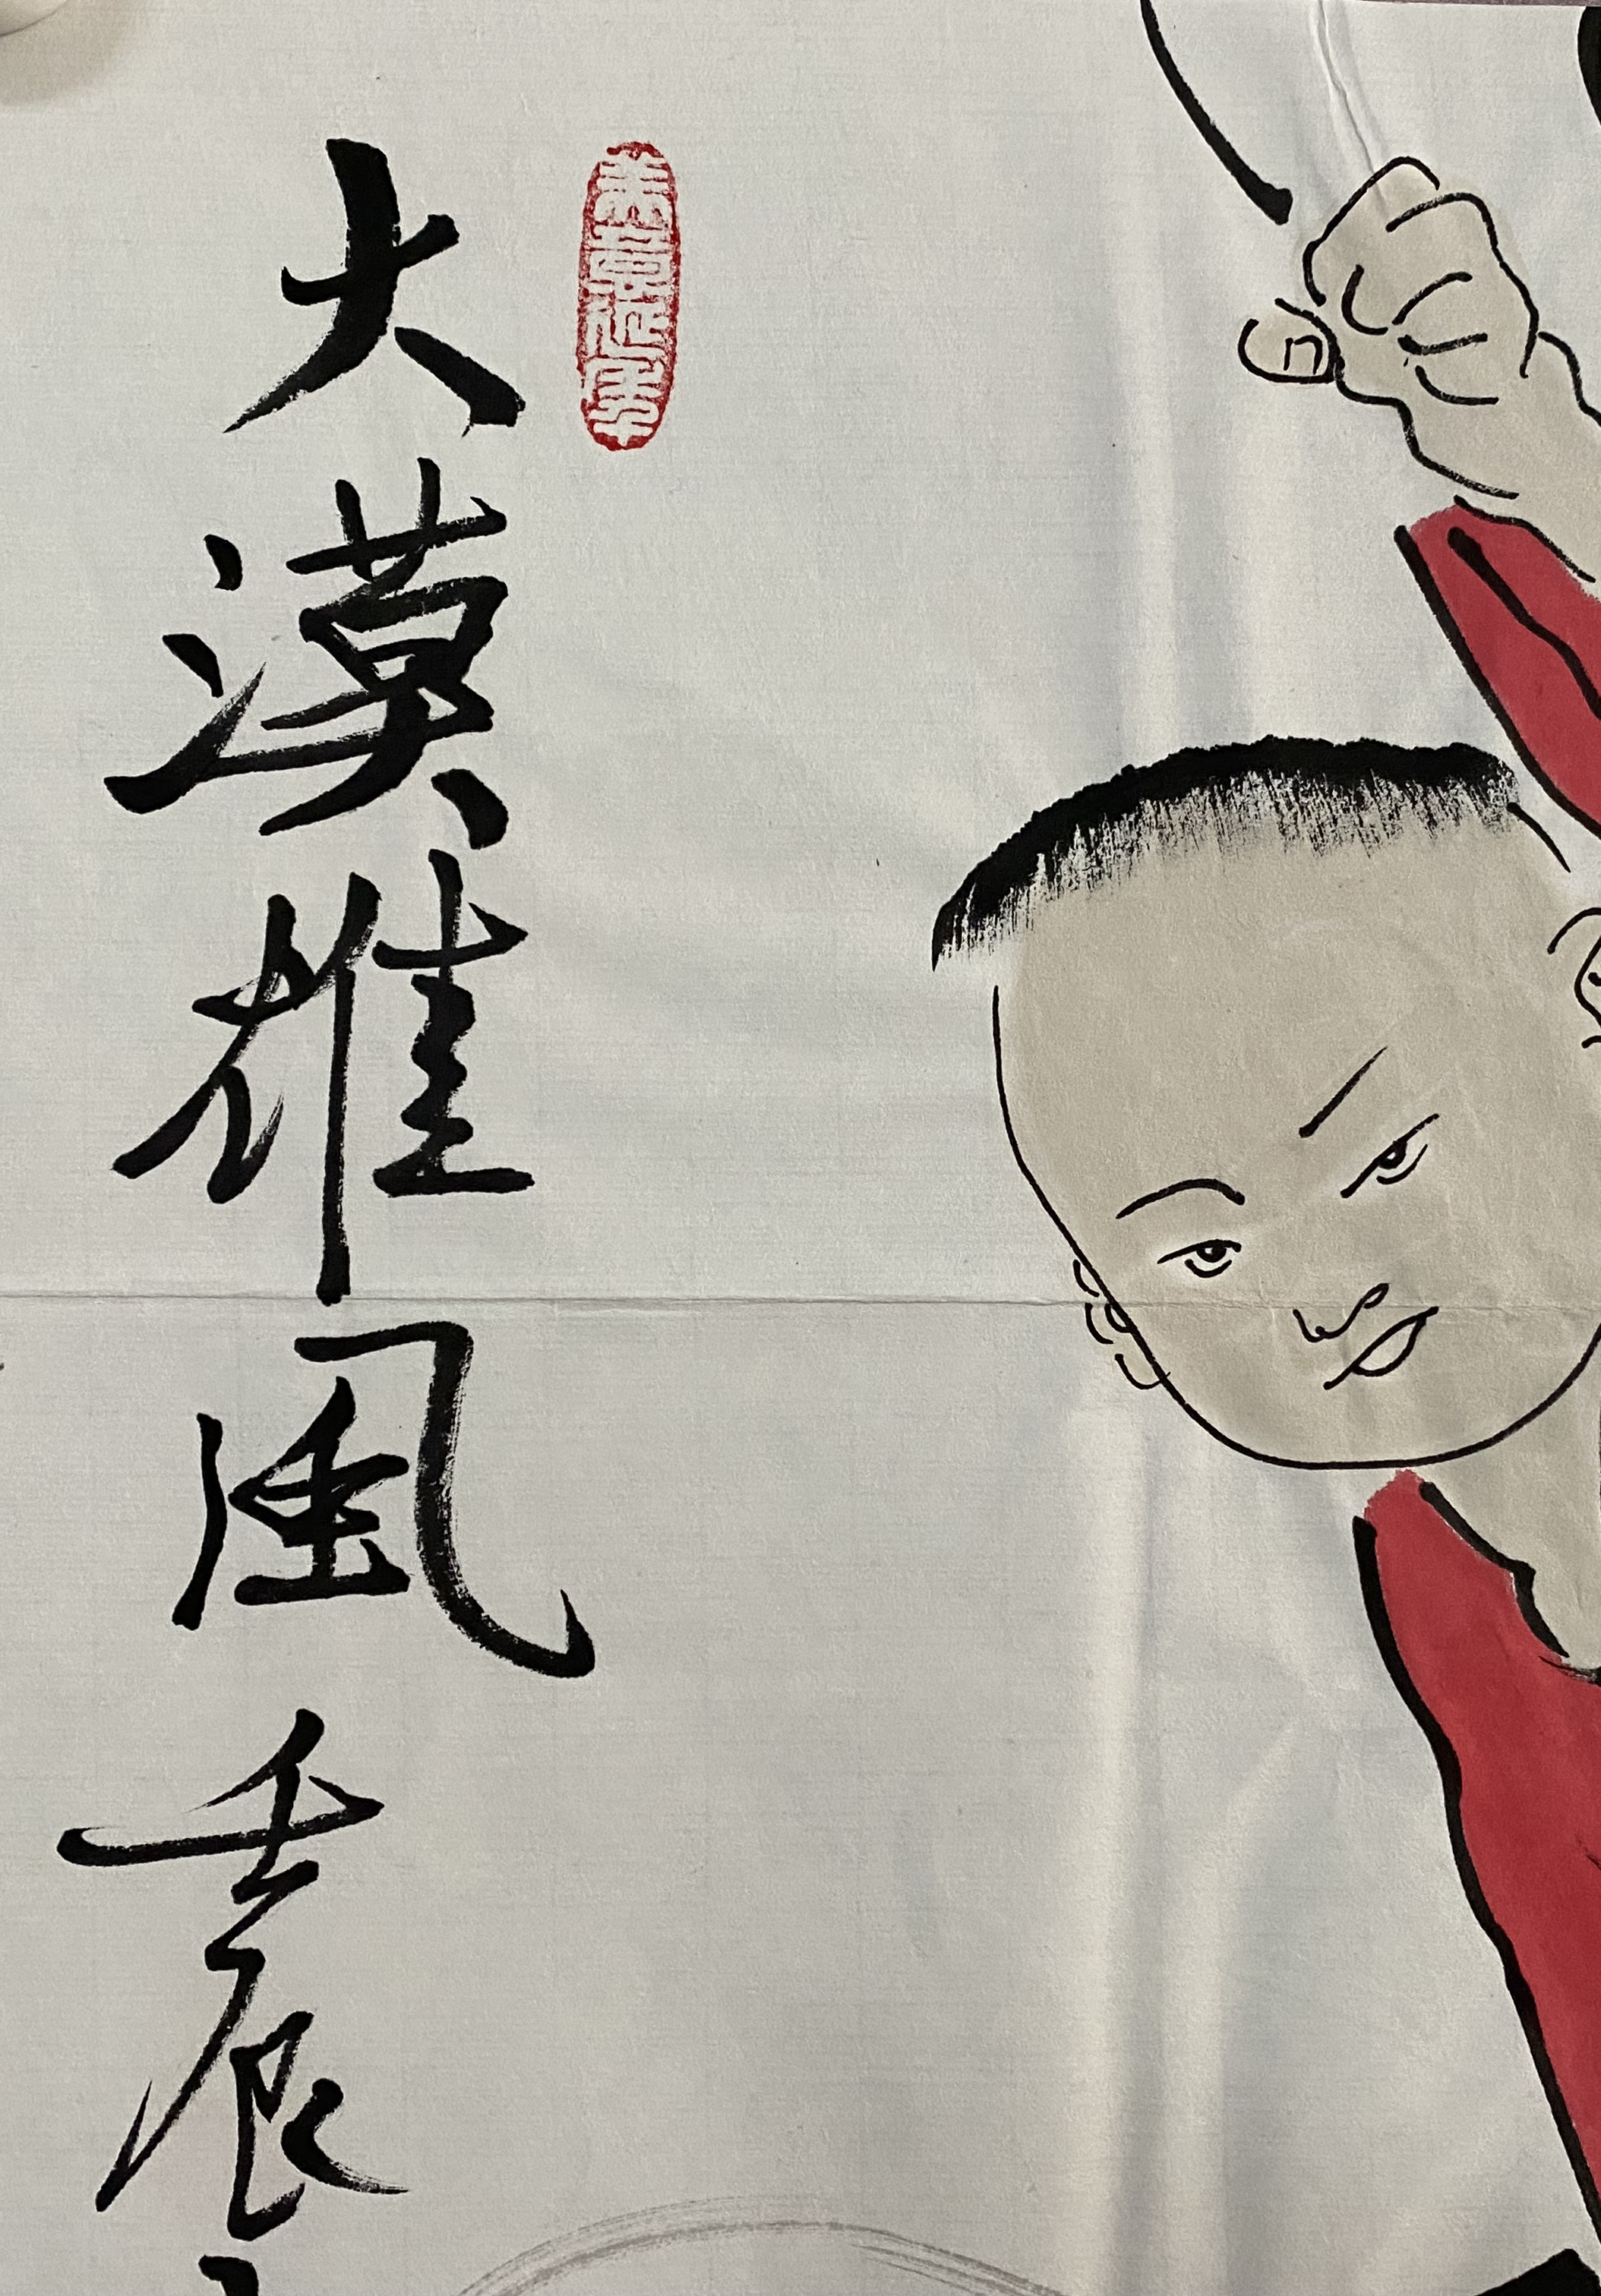 大漠雄風壬辰